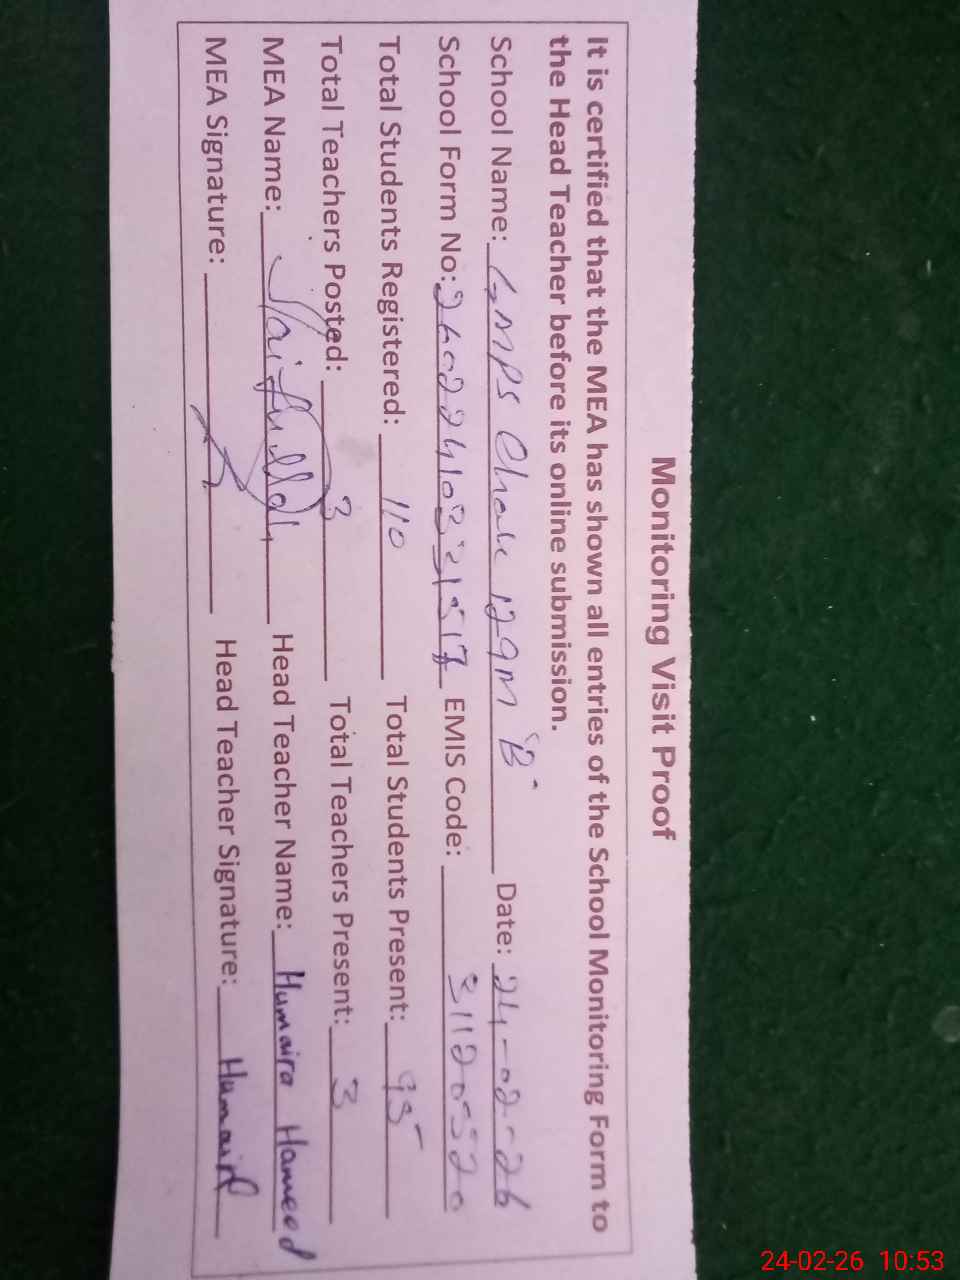 Monitoring Visit Proof
It is certified that the MEA has shown all entries of the School Monitoring Form to
the Head Teacher before its online submission.
School Name: GMPS Chak 129M "B" Date: 24-02-26
School Form No: EMIS Code: 31120520
Total Students Registered: 110 Total Students Present: 95
Total Teachers Posted: 3 Total Teachers Present: 3
MEA Name: Saifullah Head Teacher Name: Humaira Hameed
MEA Signature: Head Teacher Signature: Humaira
24-02-26 10:53